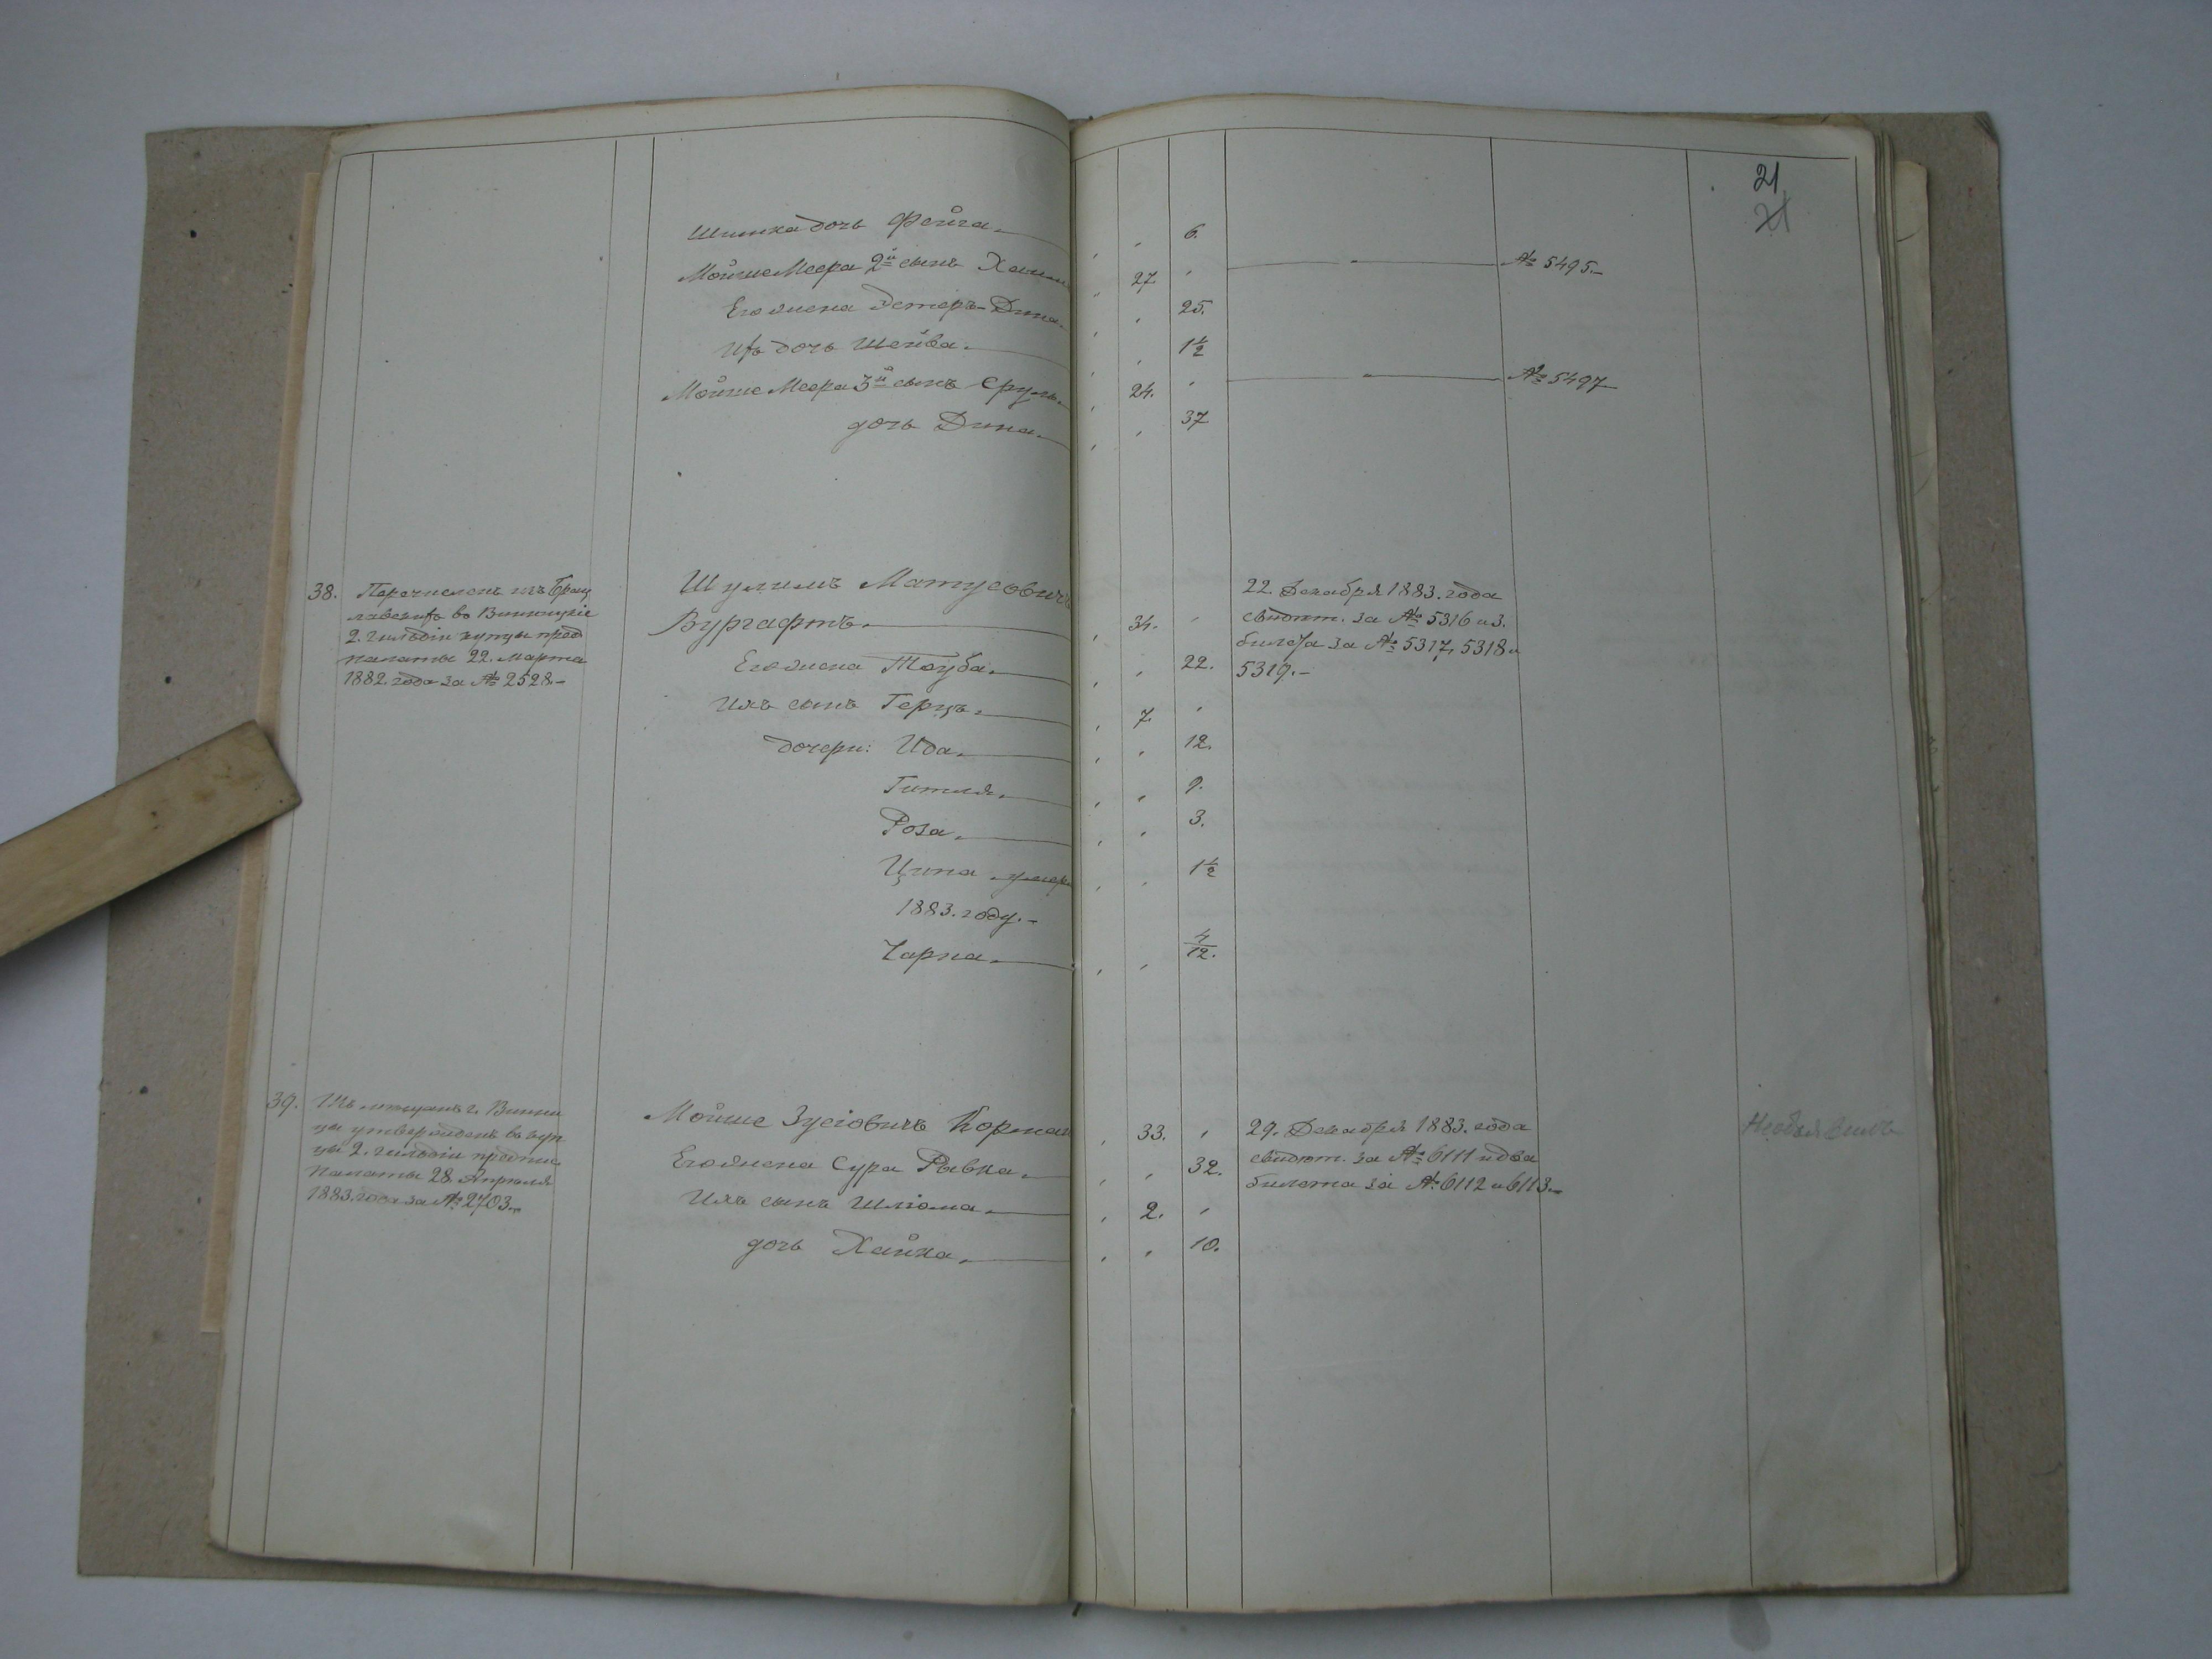 21
21
Шимка дочь Фейга. 6.
Мойше Меера 2й сынъ Хаим 27 № 5495.
Его жена Эстеръ-Дина. 25.
Ихъ дочь Шейва. 1½
Мойше Меера 3й сынъ Сруль. 24. № 5497
дочь Дина. 37
38. Перечисленъ изъ Брац
лавскихъ во Винницкіе
2. гильдіи купцы пред
палаты 22. Марта
1882. года за № 2528.
Шулимъ Матусовичъ
Вургафтъ. 34.
Его жена Тауба. 22.
Ихъ сынъ Герцъ. 7.
дочери: Ида. 12.
Гитля. 9.
Роза. 3.
Ципа умер 1½
1883. году.
Чарна. 4/12.
22. Декабря 1883. года
свидѣт. за № 5316 и 3.
билета за № 5317, 5318 и
5319.
39. Изъ мѣщанъ г. Винни
цы утвержденъ въ куп
цы 2. гильдіи предпис
Палаты 28. Апрѣля
1883. года за № 2703.
Мойше Зусіовичъ Корман 33.
Его жена Сура Рывка. 32.
Ихъ сынъ Шліома. 2.
дочь Хайка. 10.
29. Декабря 1883. года
свидѣт. за № 6111 и два
билета за № 6112 и 6113.
Необъявилъ